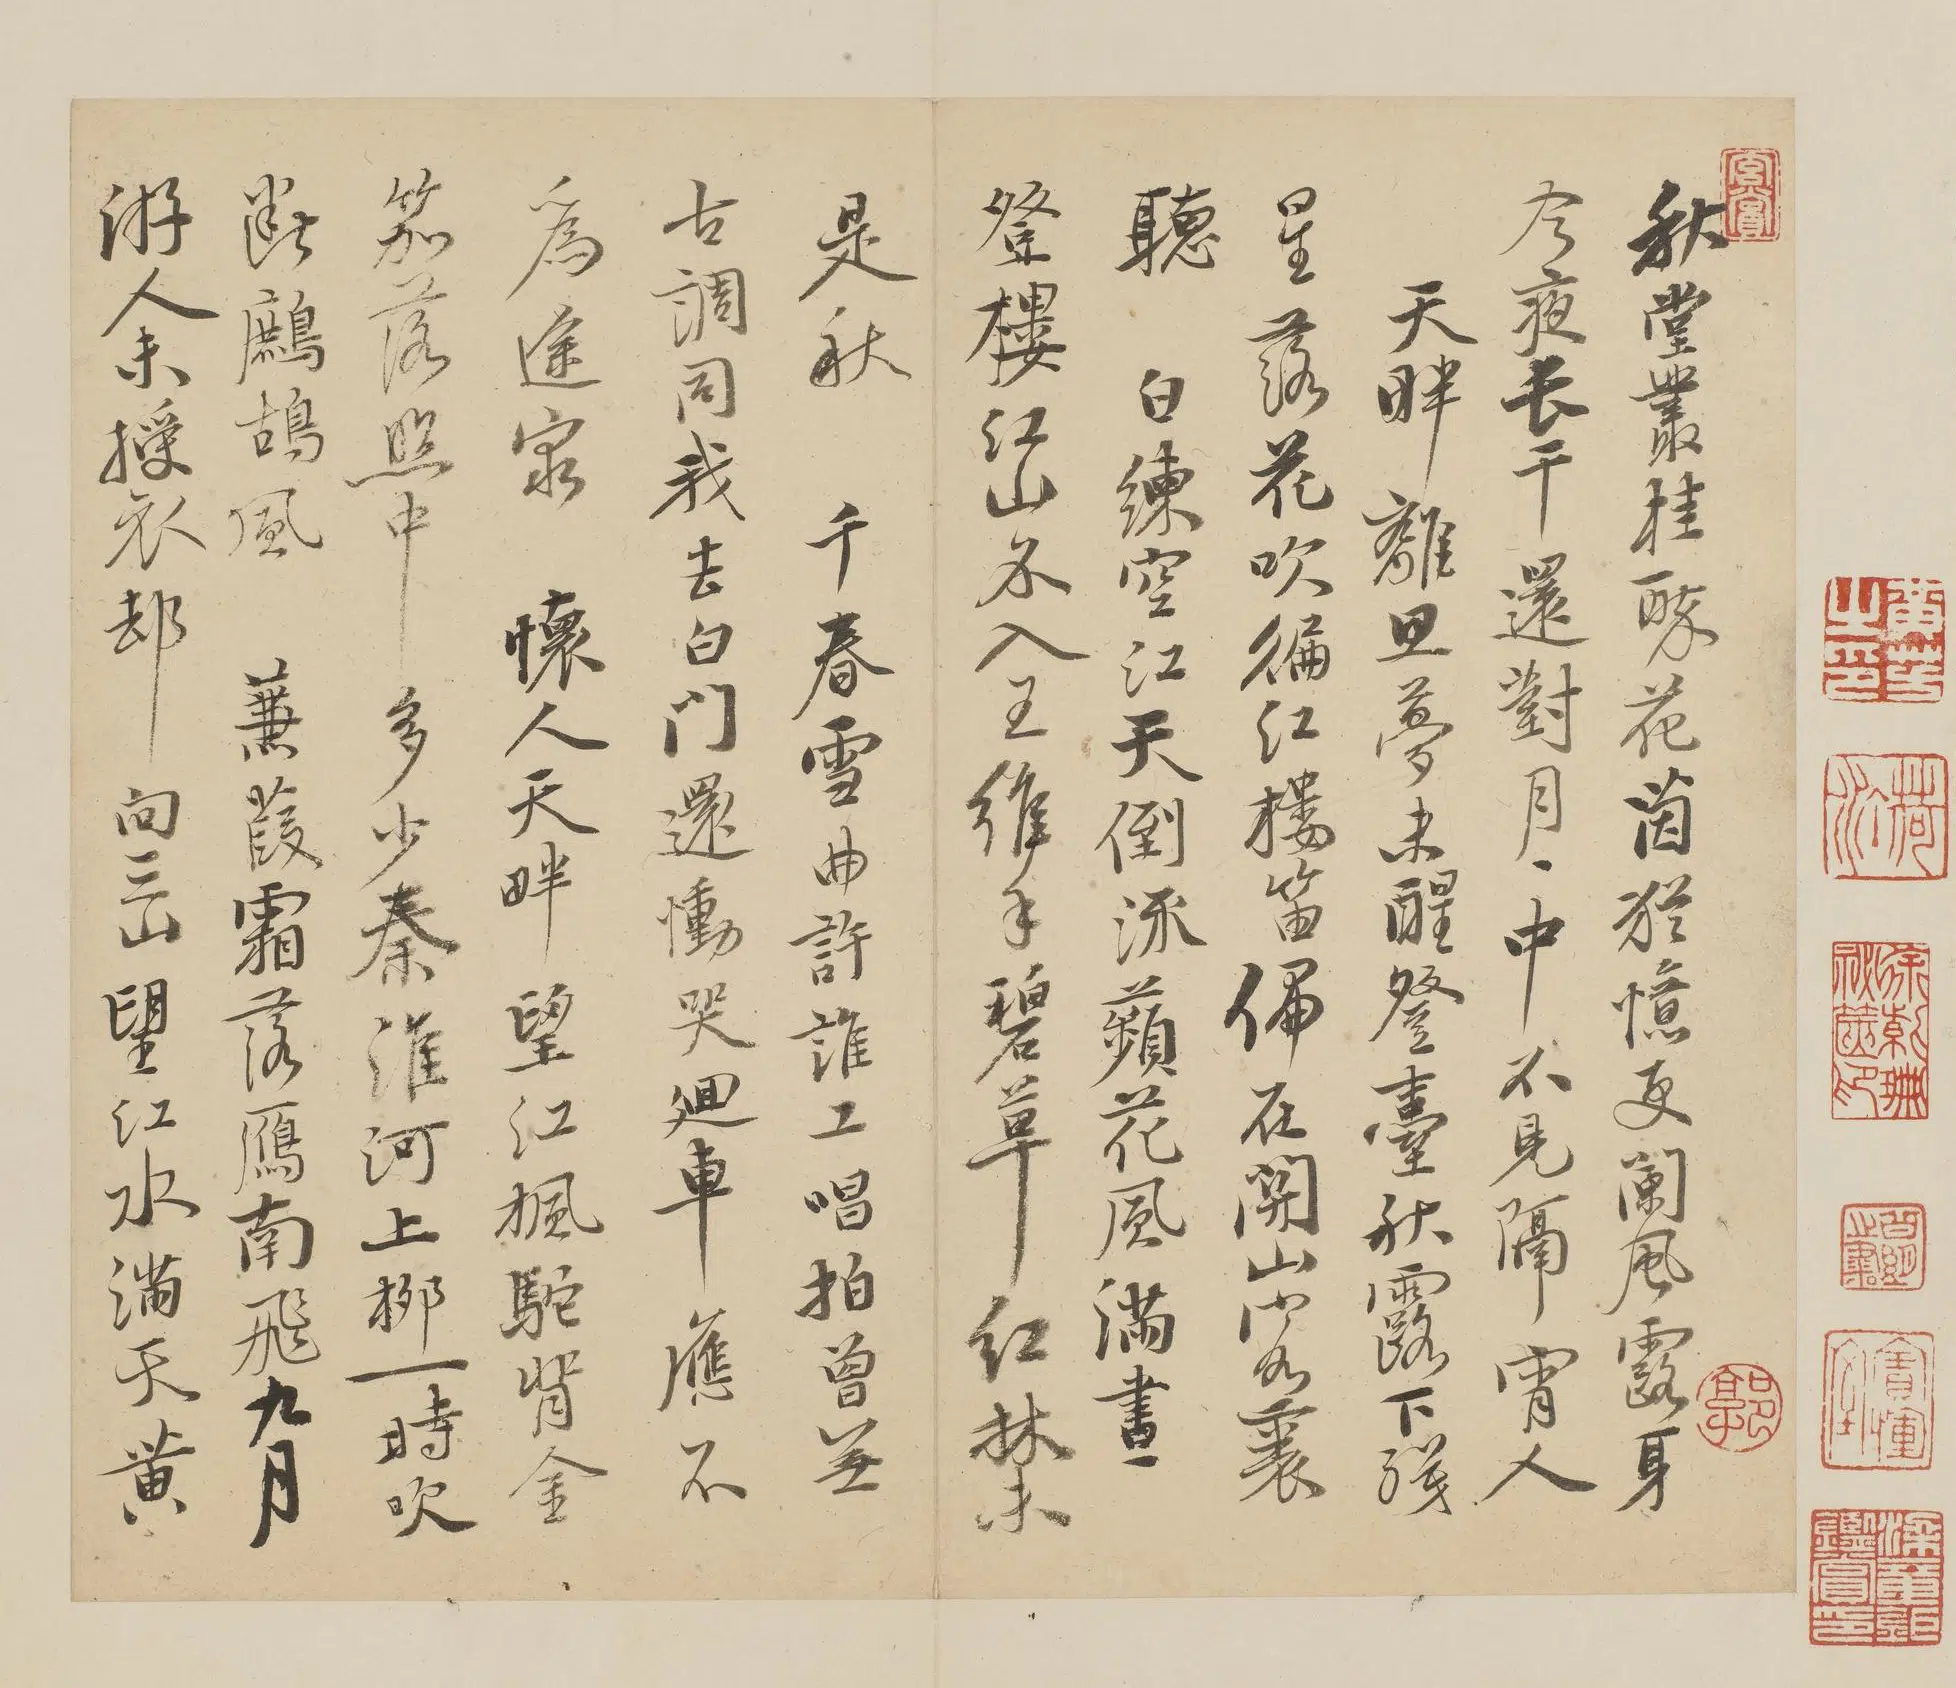 秋堂叢桂酥花茵猶憶更闌風露身
今夜長干還對月月中不見隔宵人
天畔離思夢未醒登臺秋露下殘
星落花吹徧江樓笛偏在關山客裏
聽　白練空江天倒流蘋花風滿畫
登樓江山不入王維手碧草紅林未
是秋　千春雪曲許誰工唱拍曾無
古調同我去白門還慟哭迴車應不
為途窮　懷人天畔望江楓駝背金
笳落照中多少秦淮河上柳一時吹
斷鷓鴣風　蒹葭霜落雁南飛九月
游人未授衣却向三山望江水滿天黃